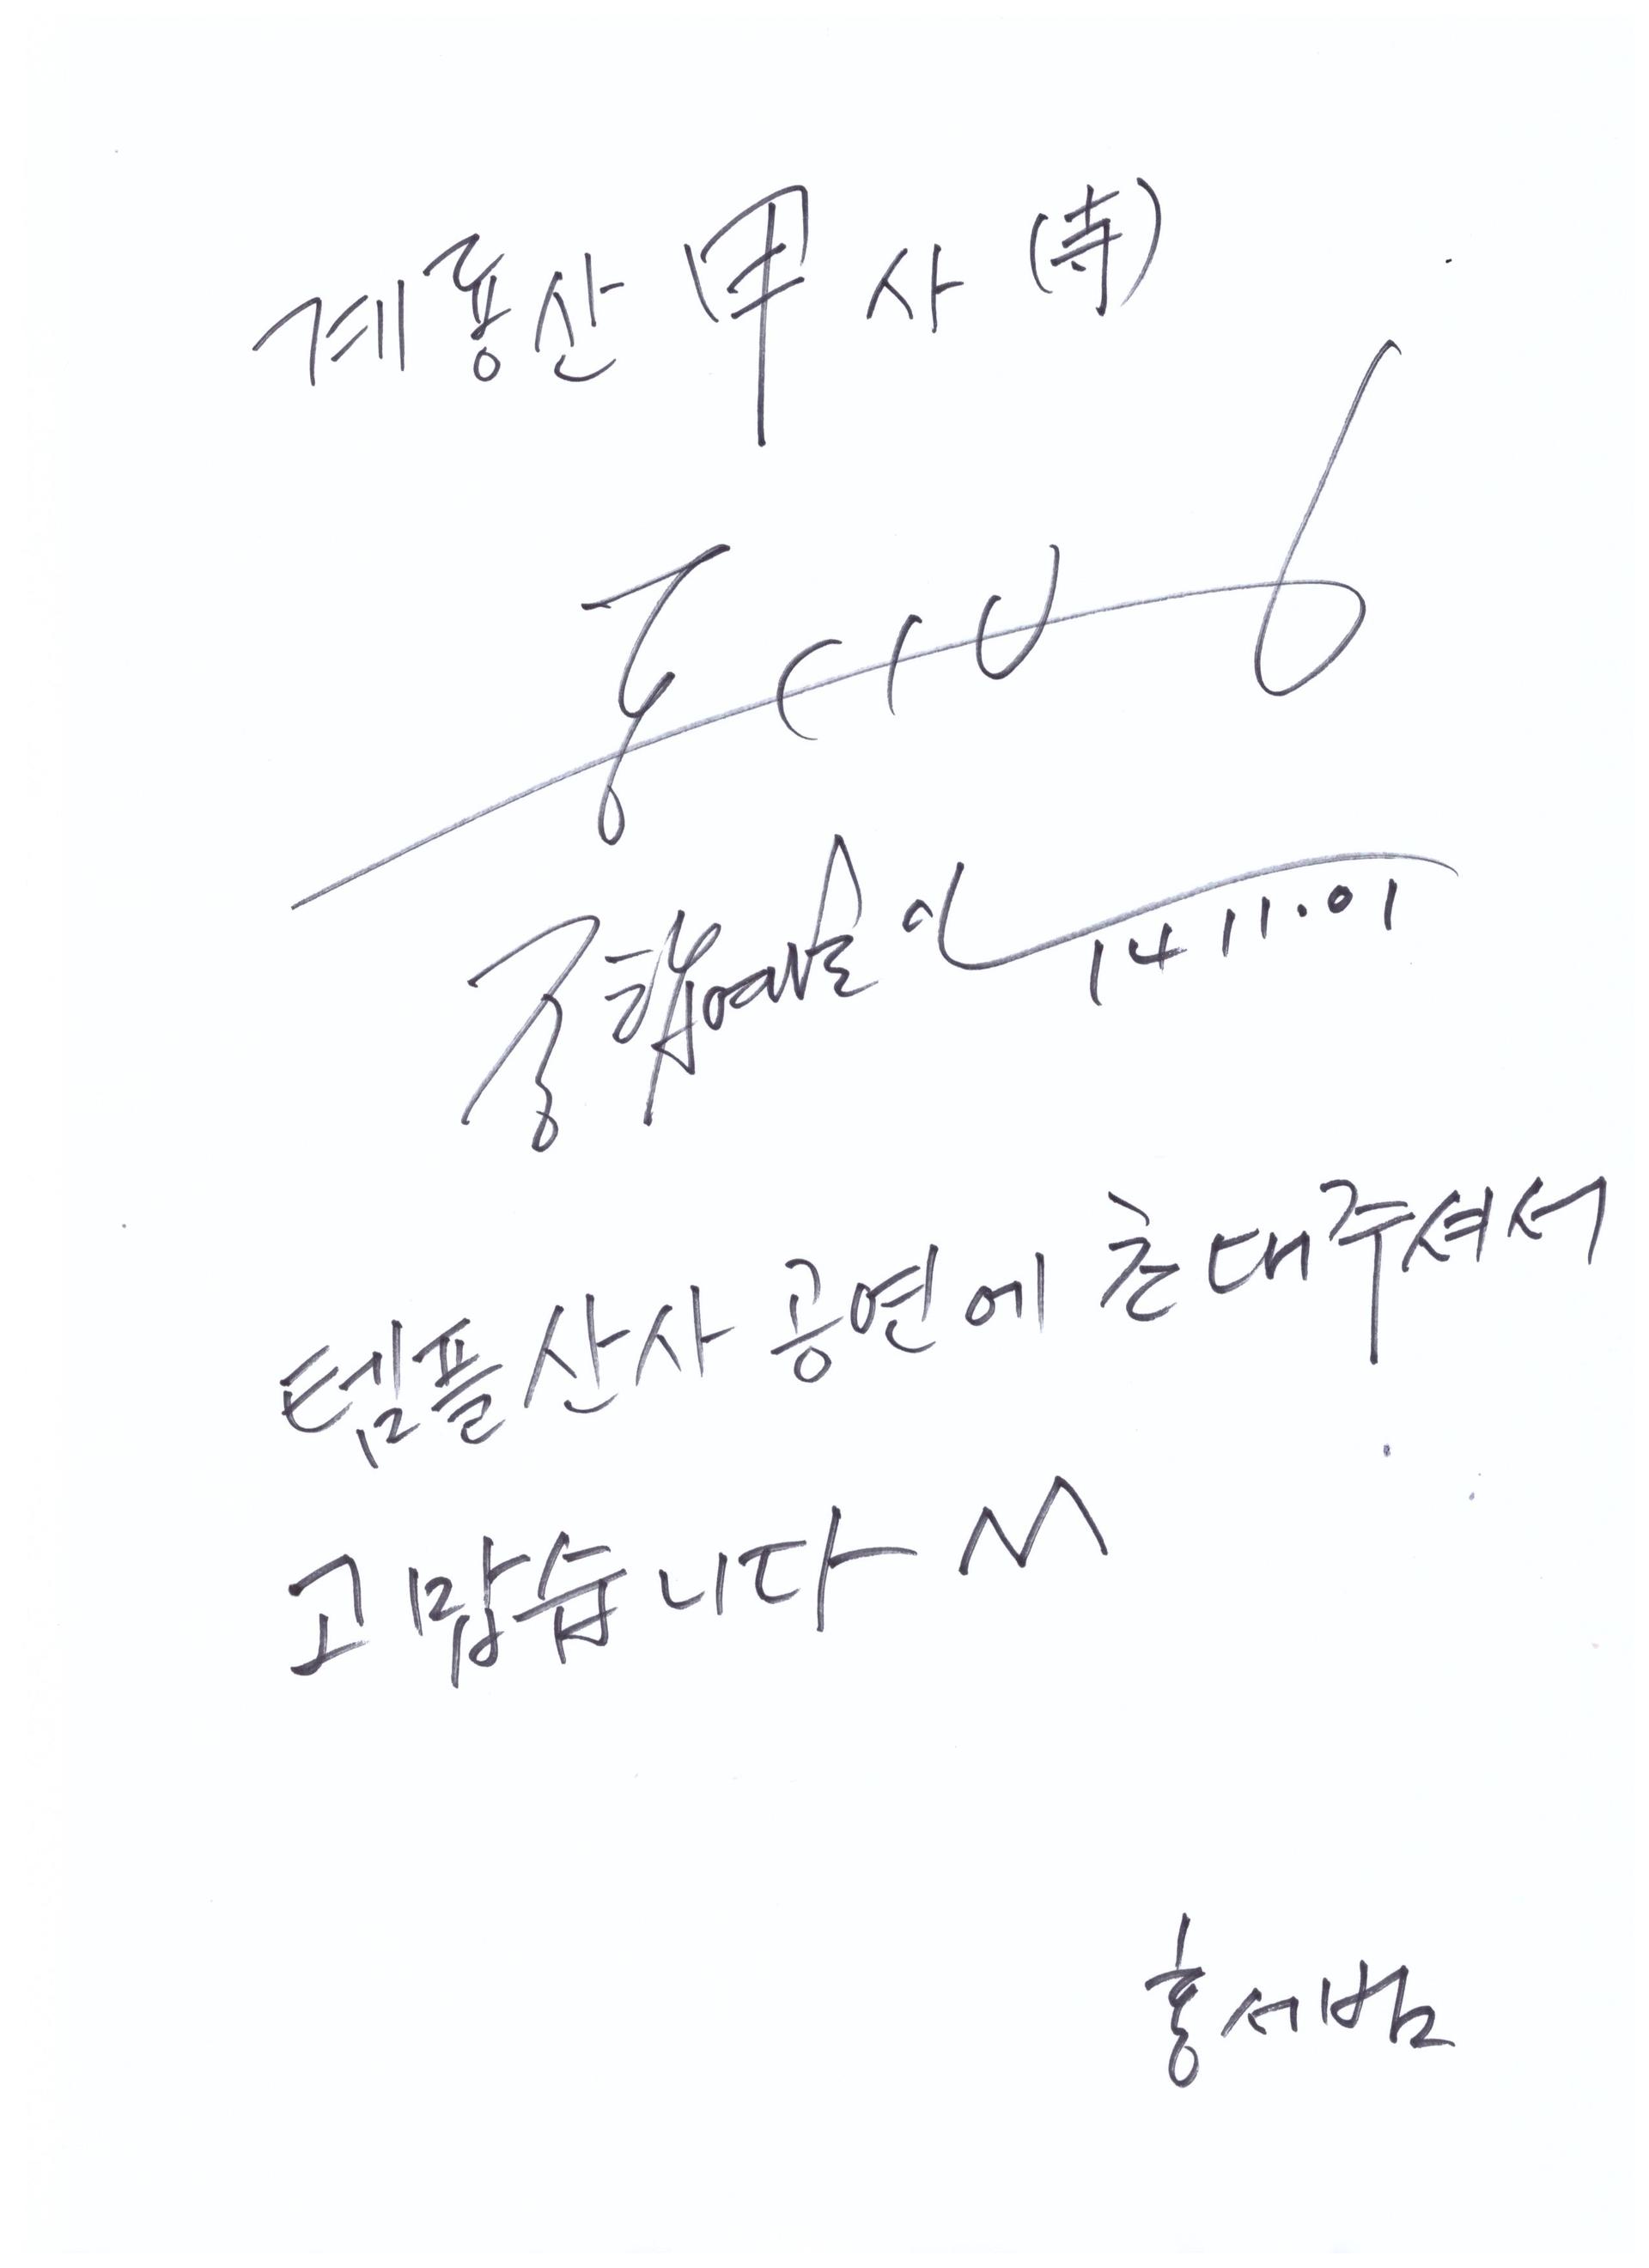 계룡산 甲 사 (寺)
14 11.01
템플산사 공연에 초대주셔서
고맙습니다
홍서범